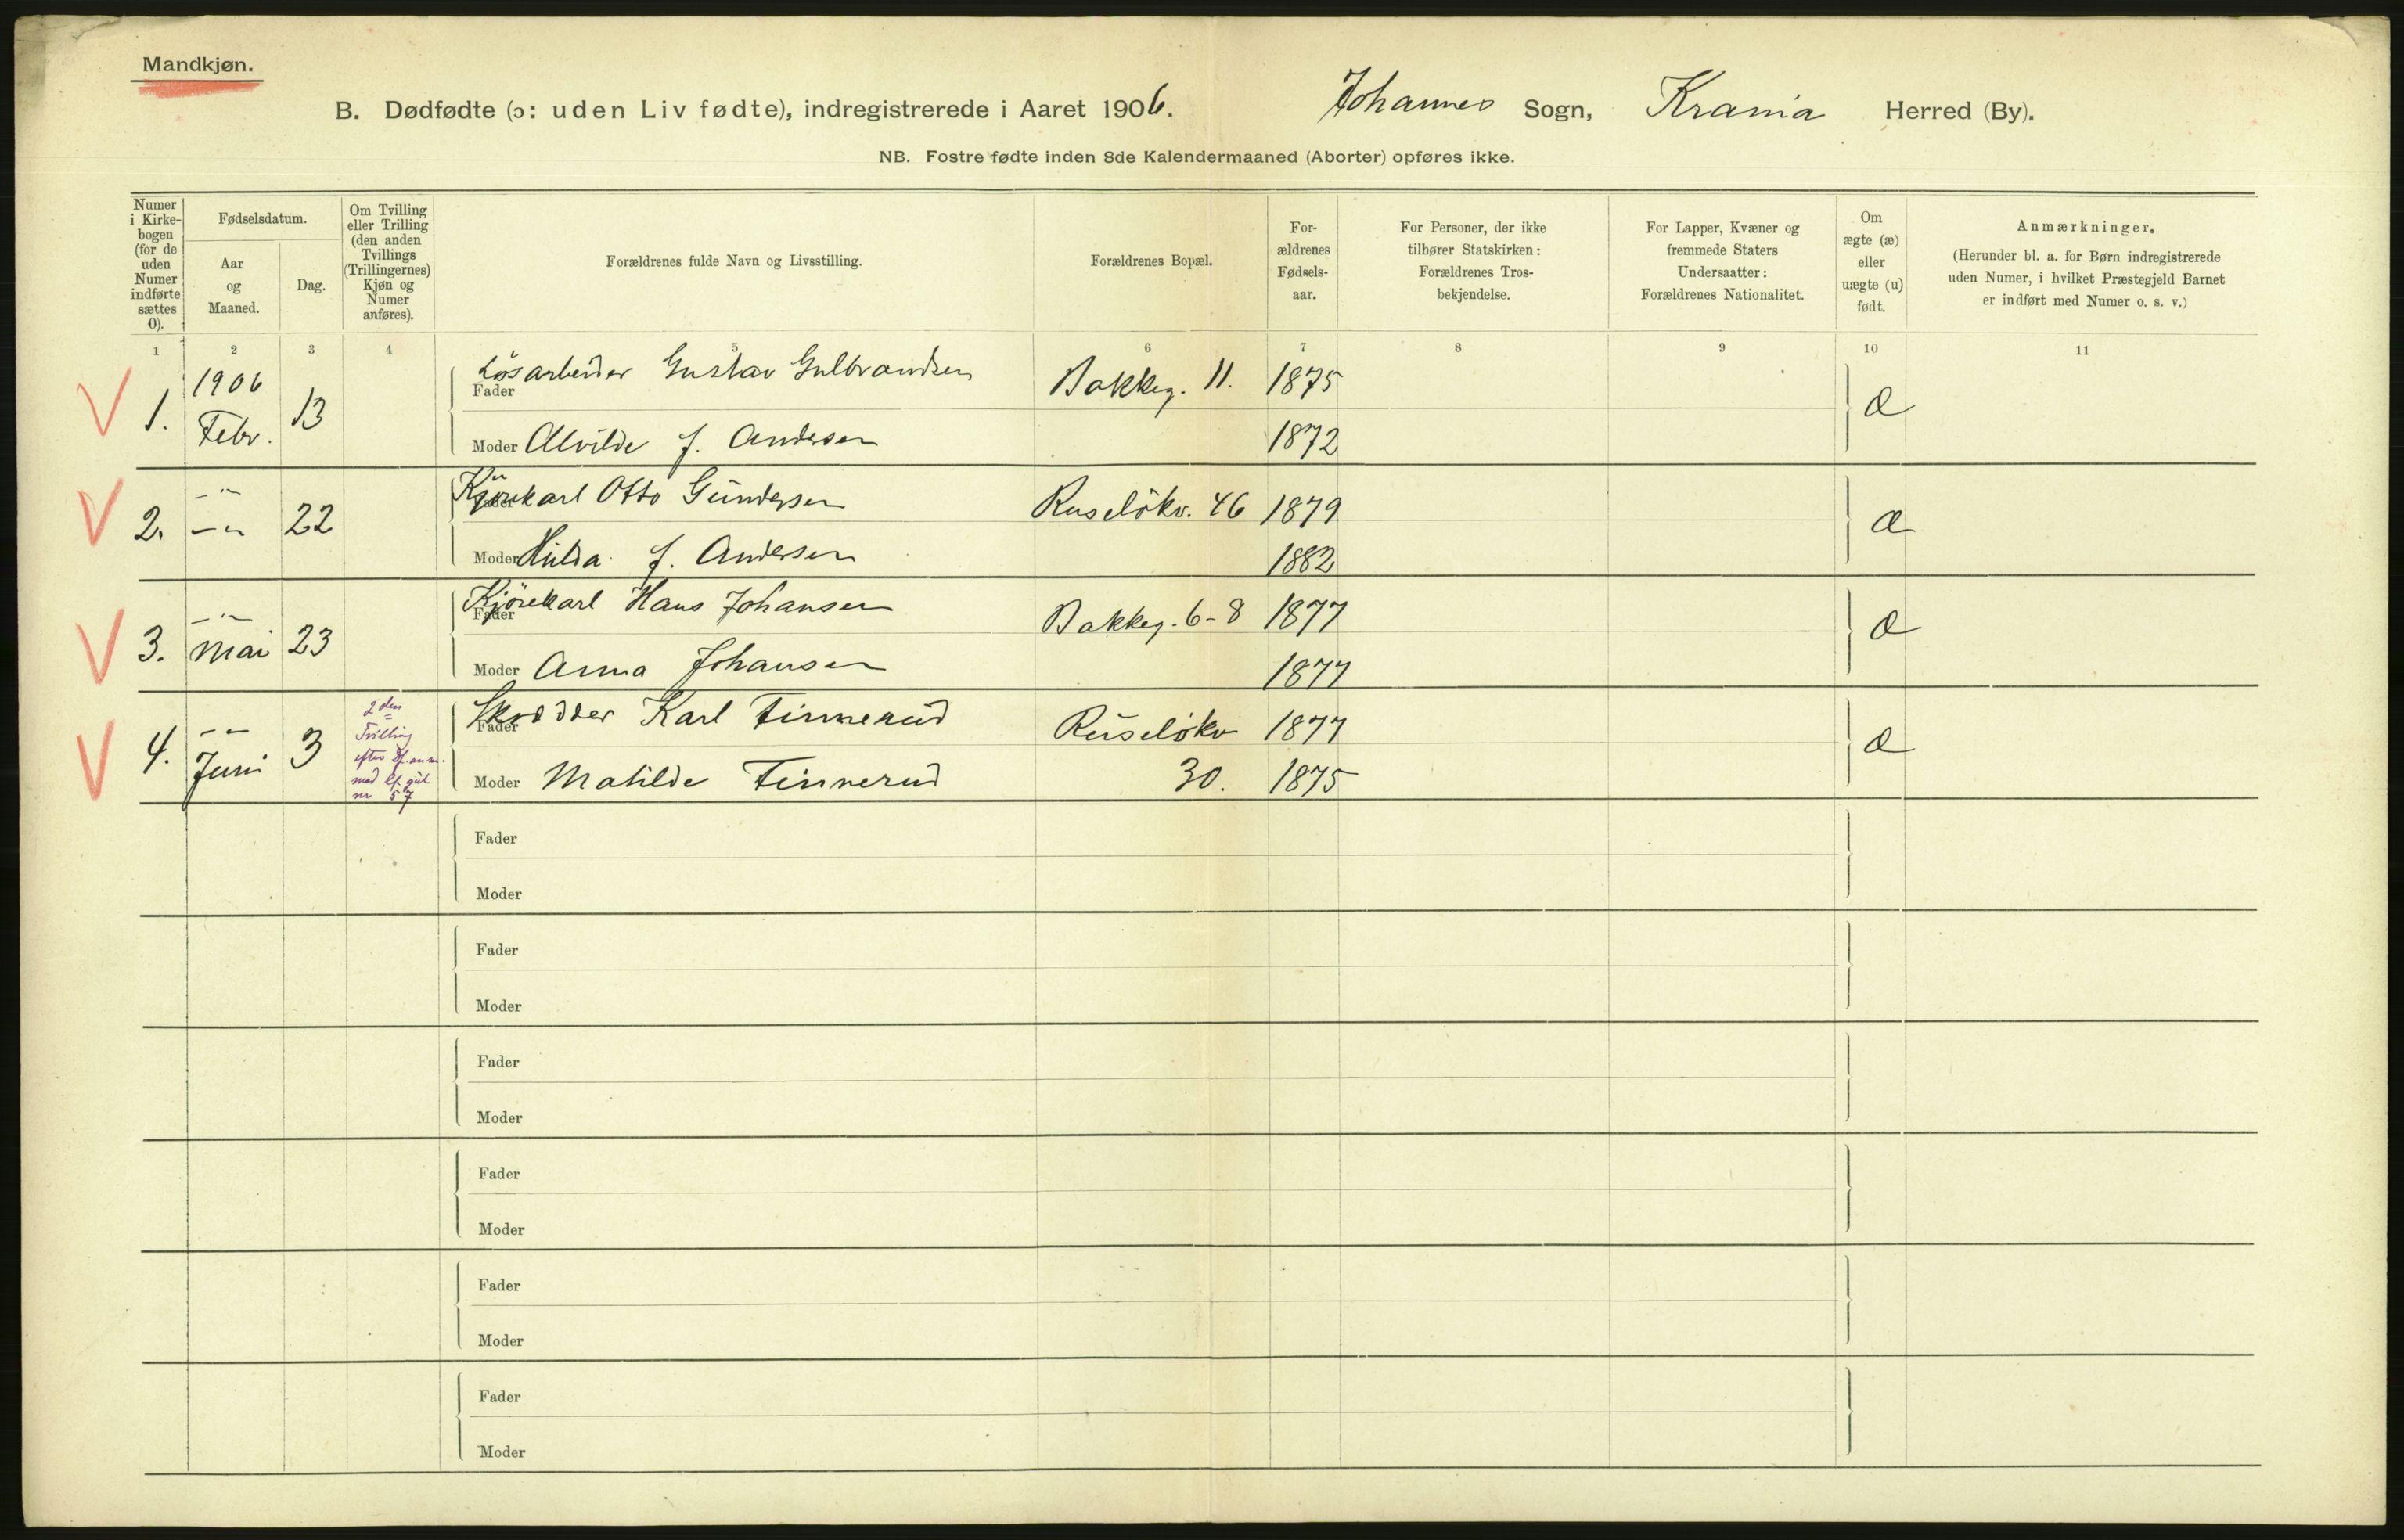 Mandkjøn.
B. Dødfødte (ɔ: uden Liv fødte), indregistrerede i Aaret 1906. Johannes Sogn, Krania Herred (By).
NB. Fostre fødte inden 8de Kalendermaaned (Aborter) opføres ikke.
Numer i Kirkebogen (for de uden Numer indførte sættes 0).
Fødselsdatum.
Aar og Maaned.
Dag.
Om Tvilling eller Trilling (den anden Tvillings (Trillingernes) Kjøn og Numer anføres).
Forældrenes fulde Navn og Livsstilling.
Forældrenes Bopæl.
For-ældrenes Fødsels-aar.
For Personer, der ikke tilhører Statskirken: Forældrenes Tros-bekjendelse.
For Lapper, Kvæner og fremmede Staters Undersaatter: Forældrenes Nationalitet.
Om ægte (æ) eller uægte (u) født.
Anmærkninger.
(Herunder bl. a. for Børn indregistrerede uden Numer, i hvilket Præstegjeld Barnet er indført med Numer o. s. v.)
1 2 3 4 5 6 7 8 9 10 11
1. 1906 Febr. 13 Fader Løsarbeider Gustav Gulbrandsen Bakkeg. 11. 1875 æ
Moder Alvilde f. Andersen 1872
2. — " — — " 22 Fader Kjørekarl Otto Gundersen Ruseløkv. 46 1879 æ
Moder Hilda f. Andersen 1882
3. — " — Mai 23 Fader Kjørekarl Hans Johansen Bakkeg. 6-8 1877 æ
Moder Anna Johansen 1877
4. — — Juni 3 2den Tvilling efter med nr 57 Fader Karl Finnerud Ruseløkv 1877 æ
Moder Matilde Finnerud 30. 1875
Fader
Moder
Fader
Moder
Fader
Moder
Fader
Moder
Fader
Moder
Fader
Moder